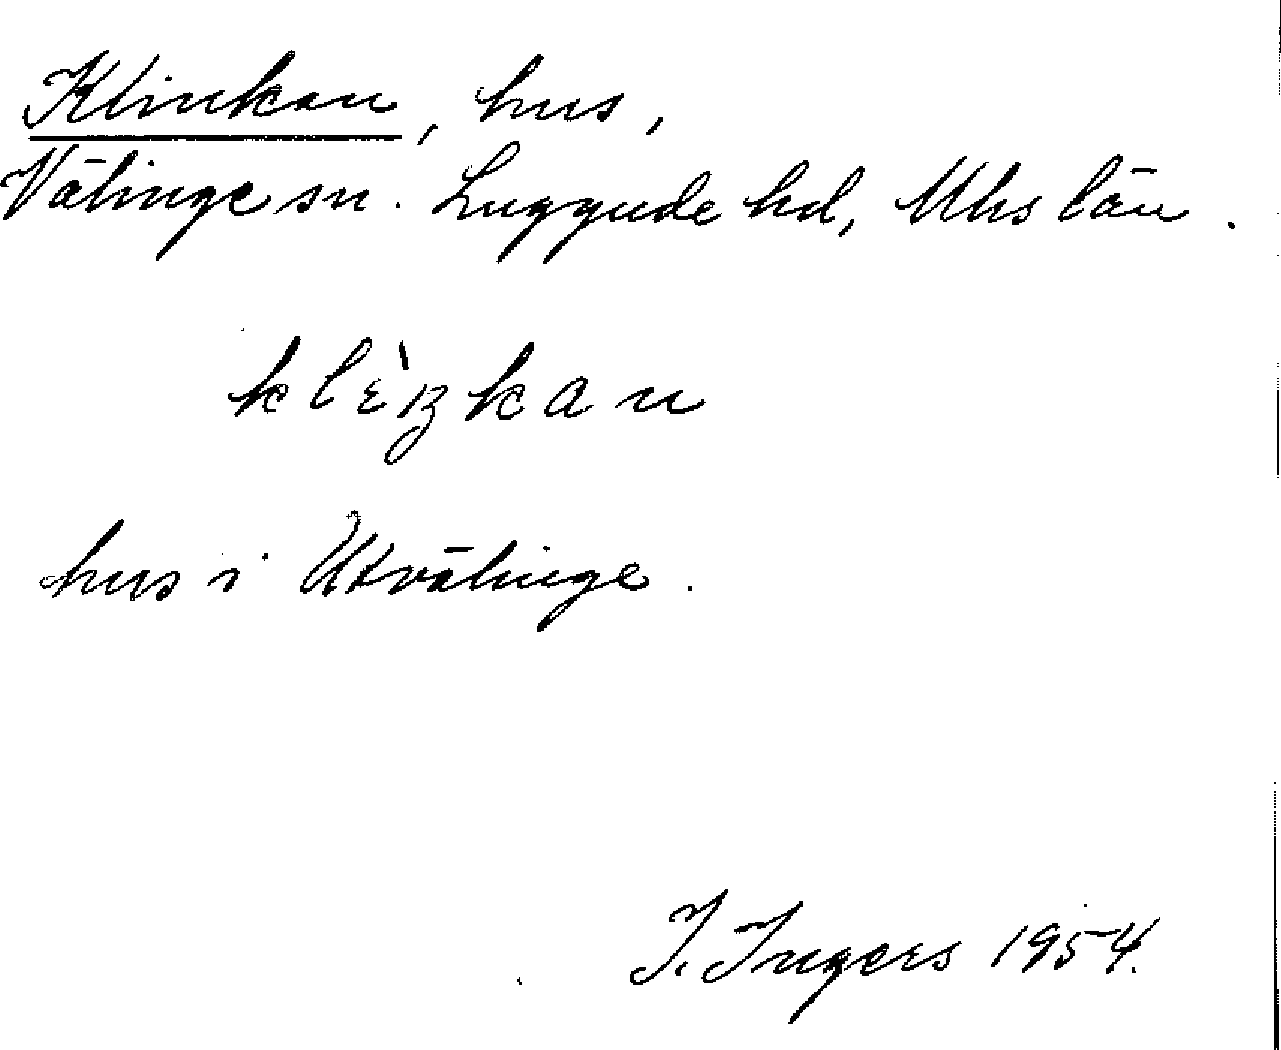 Klinkan, hus,
Välinge sn. Luggude hd, Mhs län.
klèŋkan
hus i Utvälinge.
I. Ingers 1954.